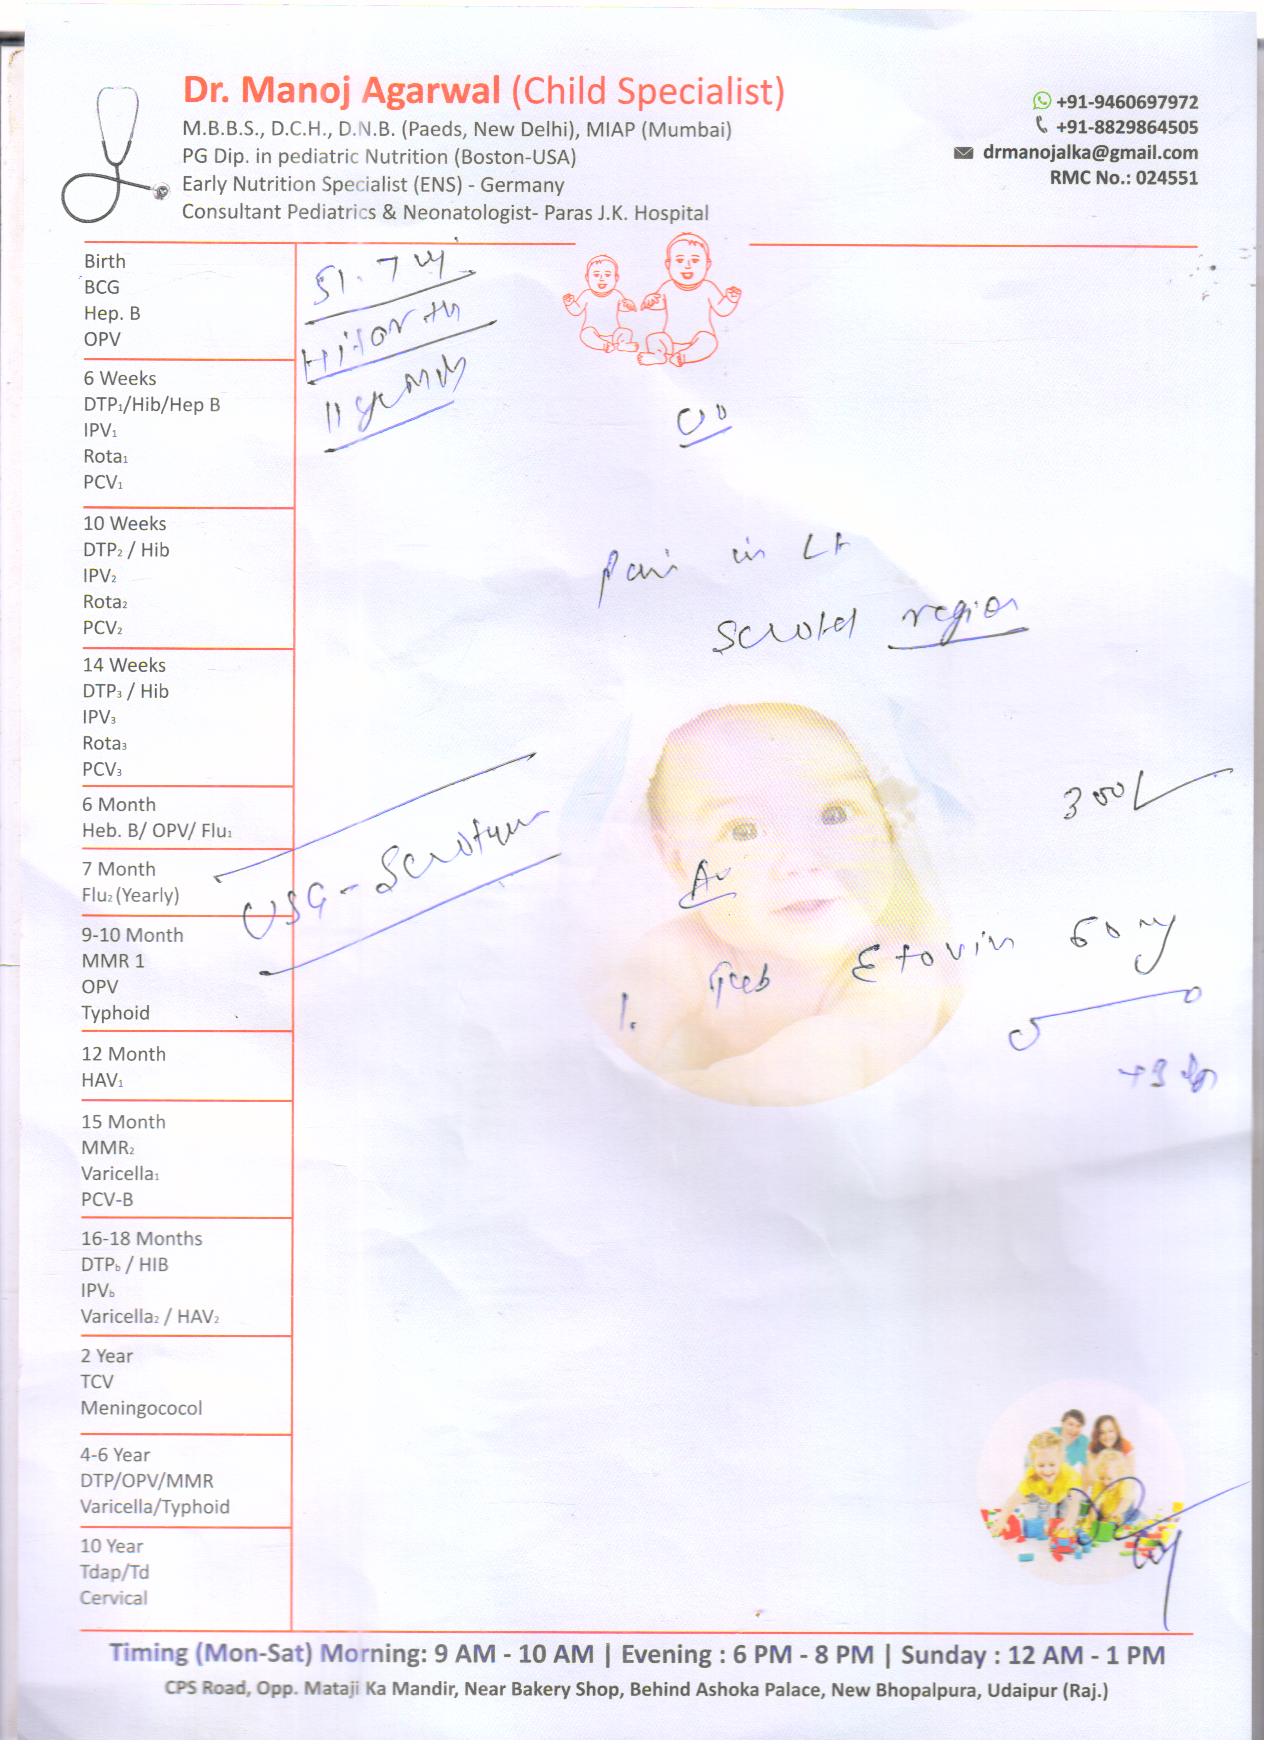 Dr. Manoj Agarwal (Child Specialist)
M.B.B.S., D.C.H., D.N.B. (Paeds, New Delhi), MIAP (Mumbai)
PG Dip. in pediatric Nutrition (Boston-USA)
Early Nutrition Specialist (ENS) - Germany
Consultant Pediatrics & Neonatologist- Paras J.K. Hospital
+91-9460697972
+91-8829864505
drmanojalka@gmail.com
RMC No.: 024551
Birth
BCG
Hep. B
OPV
6 Weeks
DTP₁/Hib/Hep B
IPV₁
Rota₁
PCV₁
10 Weeks
DTP₂ / Hib
IPV₂
Rota₂
PCV₂
14 Weeks
DTP₃ / Hib
IPV₃
Rota₃
PCV₃
6 Month
Heb. B/ OPV/ Flu₁
7 Month
Flu₂ (Yearly)
9-10 Month
MMR 1
OPV
Typhoid
12 Month
HAV₁
15 Month
MMR₂
Varicella₁
PCV-B
16-18 Months
DTPb / HIB
IPVb
Varicella₂ / HAV₂
2 Year
TCV
Meningococol
4-6 Year
DTP/OPV/MMR
Varicella/Typhoid
10 Year
Tdap/Td
Cervical
51.7 kg
11 year
pain in Lt
Scrotal region
USG - Scrotum
300/-
1. Tab
60 mg
Timing (Mon-Sat) Morning: 9 AM - 10 AM | Evening : 6 PM - 8 PM | Sunday : 12 AM - 1 PM
CPS Road, Opp. Mataji Ka Mandir, Near Bakery Shop, Behind Ashoka Palace, New Bhopalpura, Udaipur (Raj.)